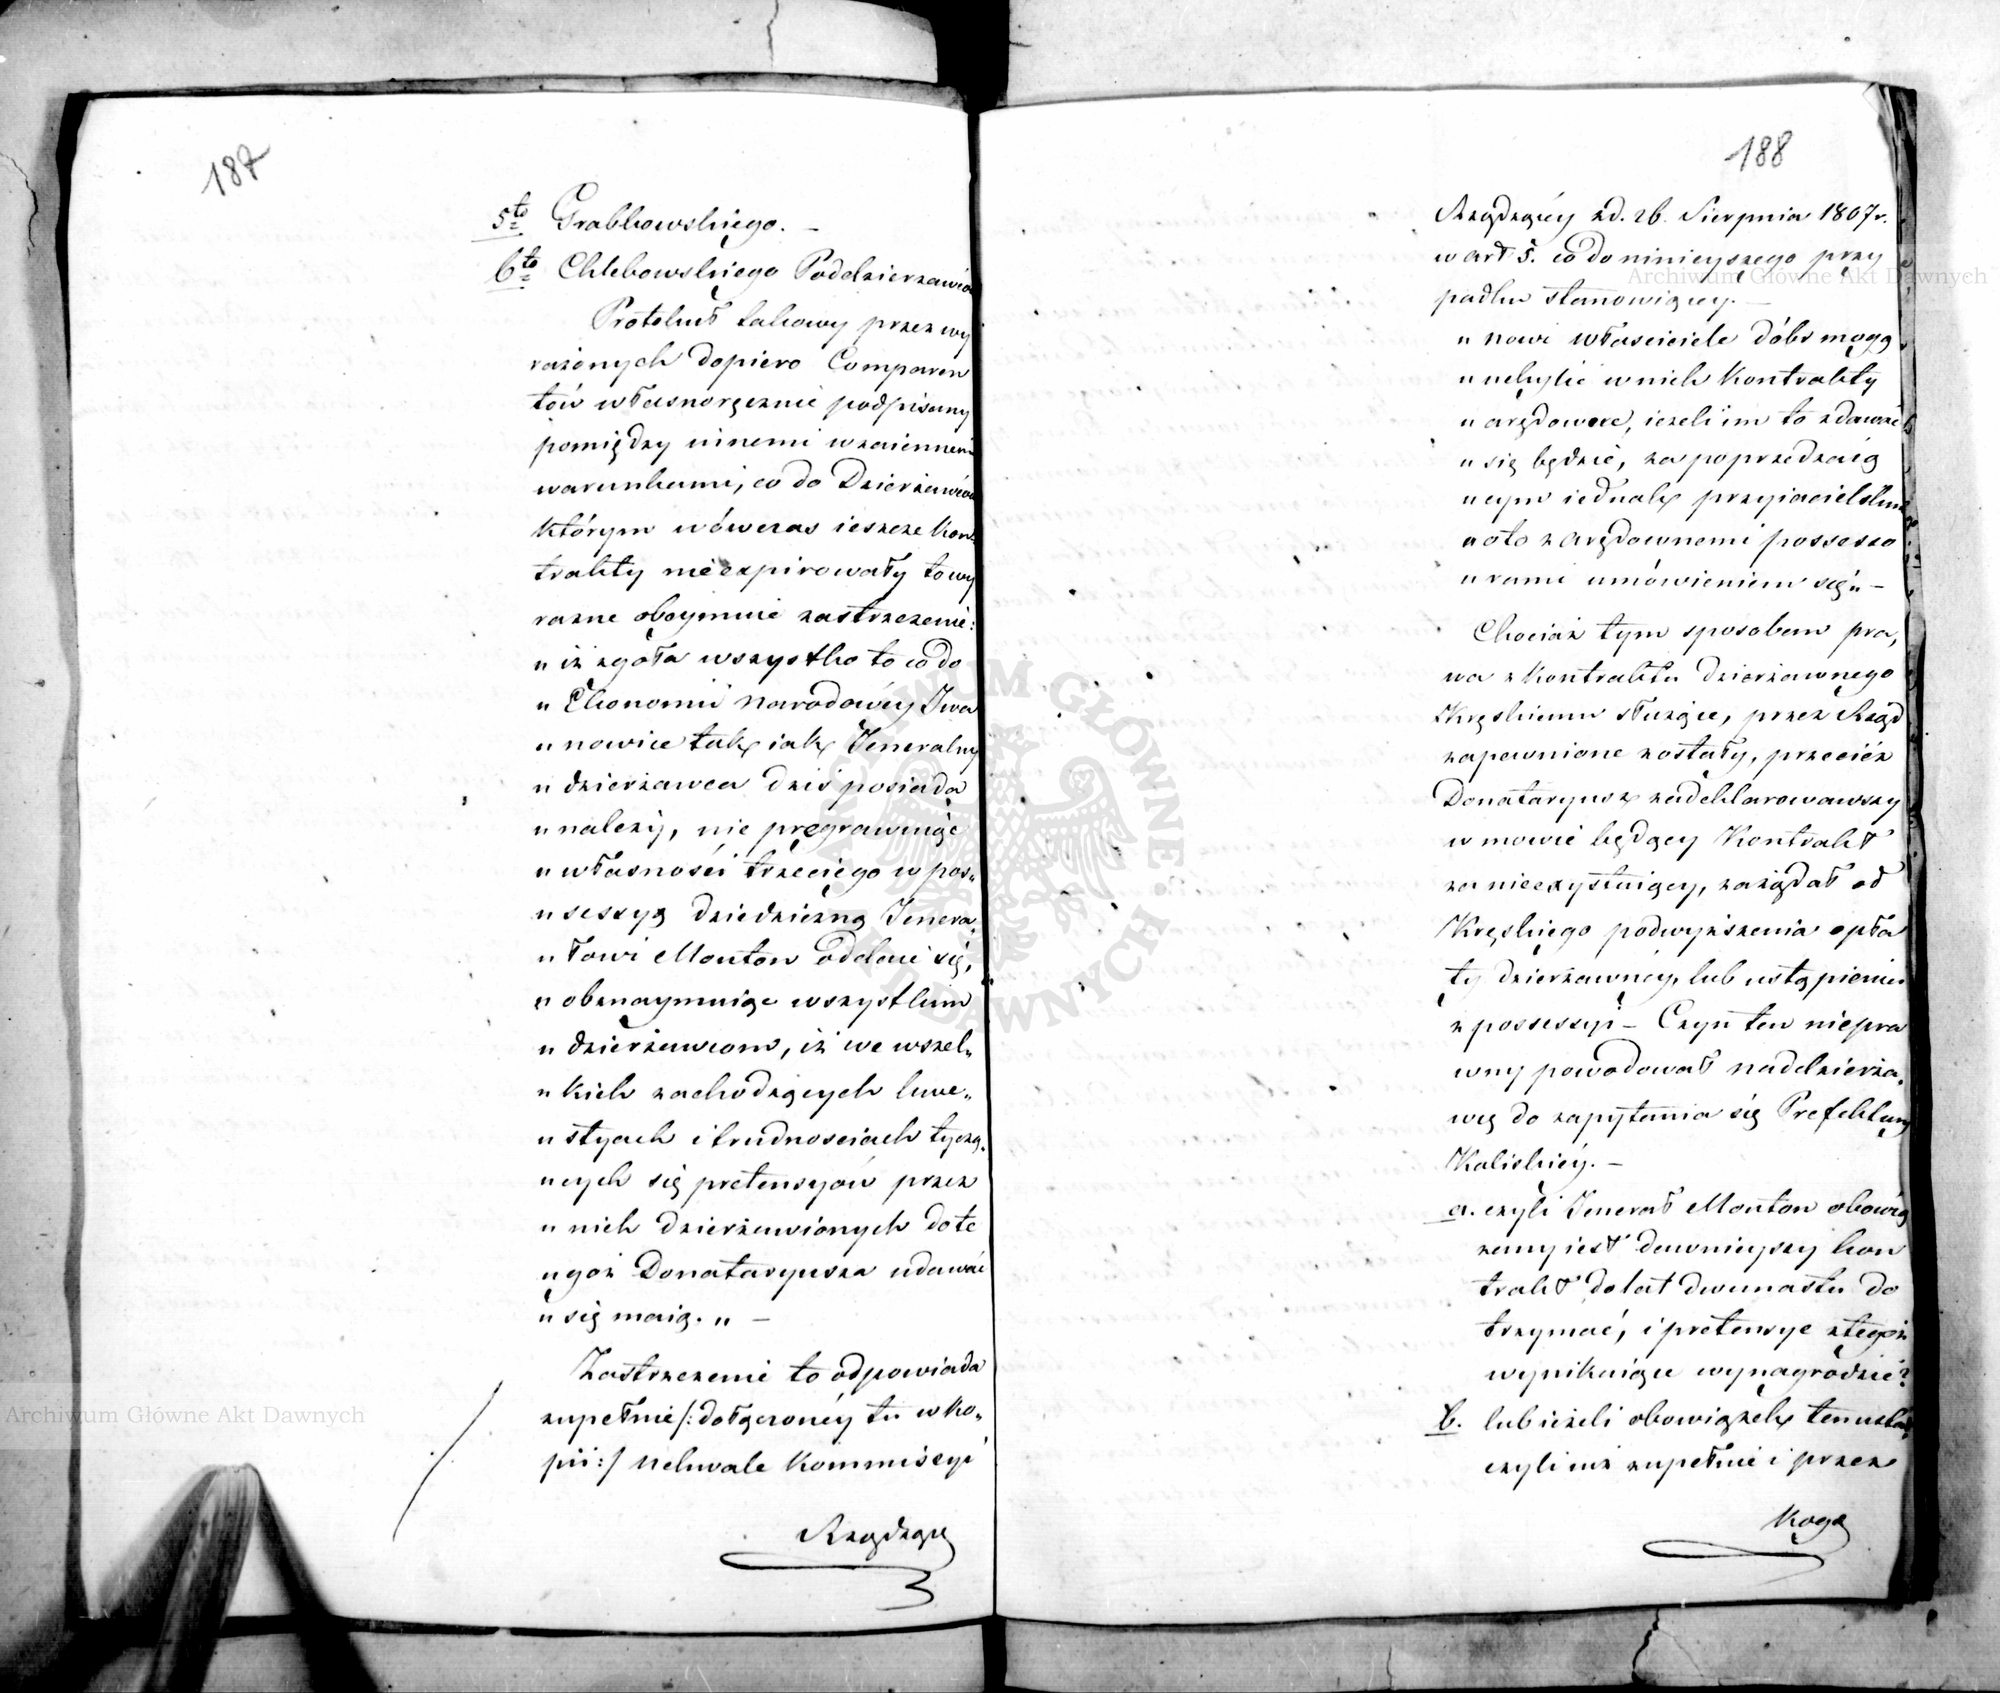 187
5to Grabkowskiego. –
6to Chlebowskiego Poddzierzawcę
Protokuł takowy przez wy
rażonych dopiero Comparen
tów własnoręcznie podpisany
pomiędzy innemi wzaiemnemi
warunkami, co do Dzierżawców
którym wówczas ieszcze kon
trakty nieexpirowały to wy
razne obeymuie zastrzeżenie:
„ iż zgoła wszystko to co do
„ Ekonomii Narodowéy Iwa
„ nowice tak iak Jeneralny
„ dzierżawca dziś posiada
„ należy, nie pręgrawuiąc
„ własności trzeciego w pos„
„ sessyą dziedziczną Jenera„
„ łowi Mouton oddaie się,
„ obznaymuiąc wszystkim
„ dzierżawcom, iż we wszel„
„ kich zachodzących kwe„
„ styach i trudnościach tyczą„
„ cych się pretensyów przez
„ nich dzierżawionych do te
„ goż Donataryusza udawać
„ się maią. „ –
Zastrzeżenie to odpowiada
zupełnie /: dołączonéy tu w ko„
pii :/ uchwale Kommissyi
Rządzącey
188
Rządzącéy z d. 26. Sierpnia 1807 r.
w art 5. co do ninieyszego przy
padku stanowiącey. –
„ nowi właściciele dóbr mogą
„ uchylić w nich kontrakty
„ arędowne, ieżeli im to zdawać
„ się będzie, za poprzedzaią
„ cym iednak przyiacielskim
„ oto z arędownemi possesso
„ rami umówieniem się„ –
Chociaż tym sposobem pra„
wa z kontraktu dzierżawnego
Kręskiemu służące, przez Rząd
zapewnione zostały, przecież
Donataryusz zadeklarowawszy
w mowie będący Kontrakt
za nieexystuiący, zażądał od
Kręskiego podwyższenia opła
ty dzierżawnéy, lub ustąpienia
z possessyi – Czyn ten niepra
wny powodował naddzierża„
wcę do zapytania się Prefektury
Kaliskiéy. –
a. czyli Jenerał Mouton obowią
zany iest dawnieyszy kon
trakt do lat dwunastu do
trzymać, i pretensye z tegoż
wynikaiące wynagrodzić?
b. lub ieżeli obowiązek ten ustał,
czyli iuż zupełnie i przez
kogo